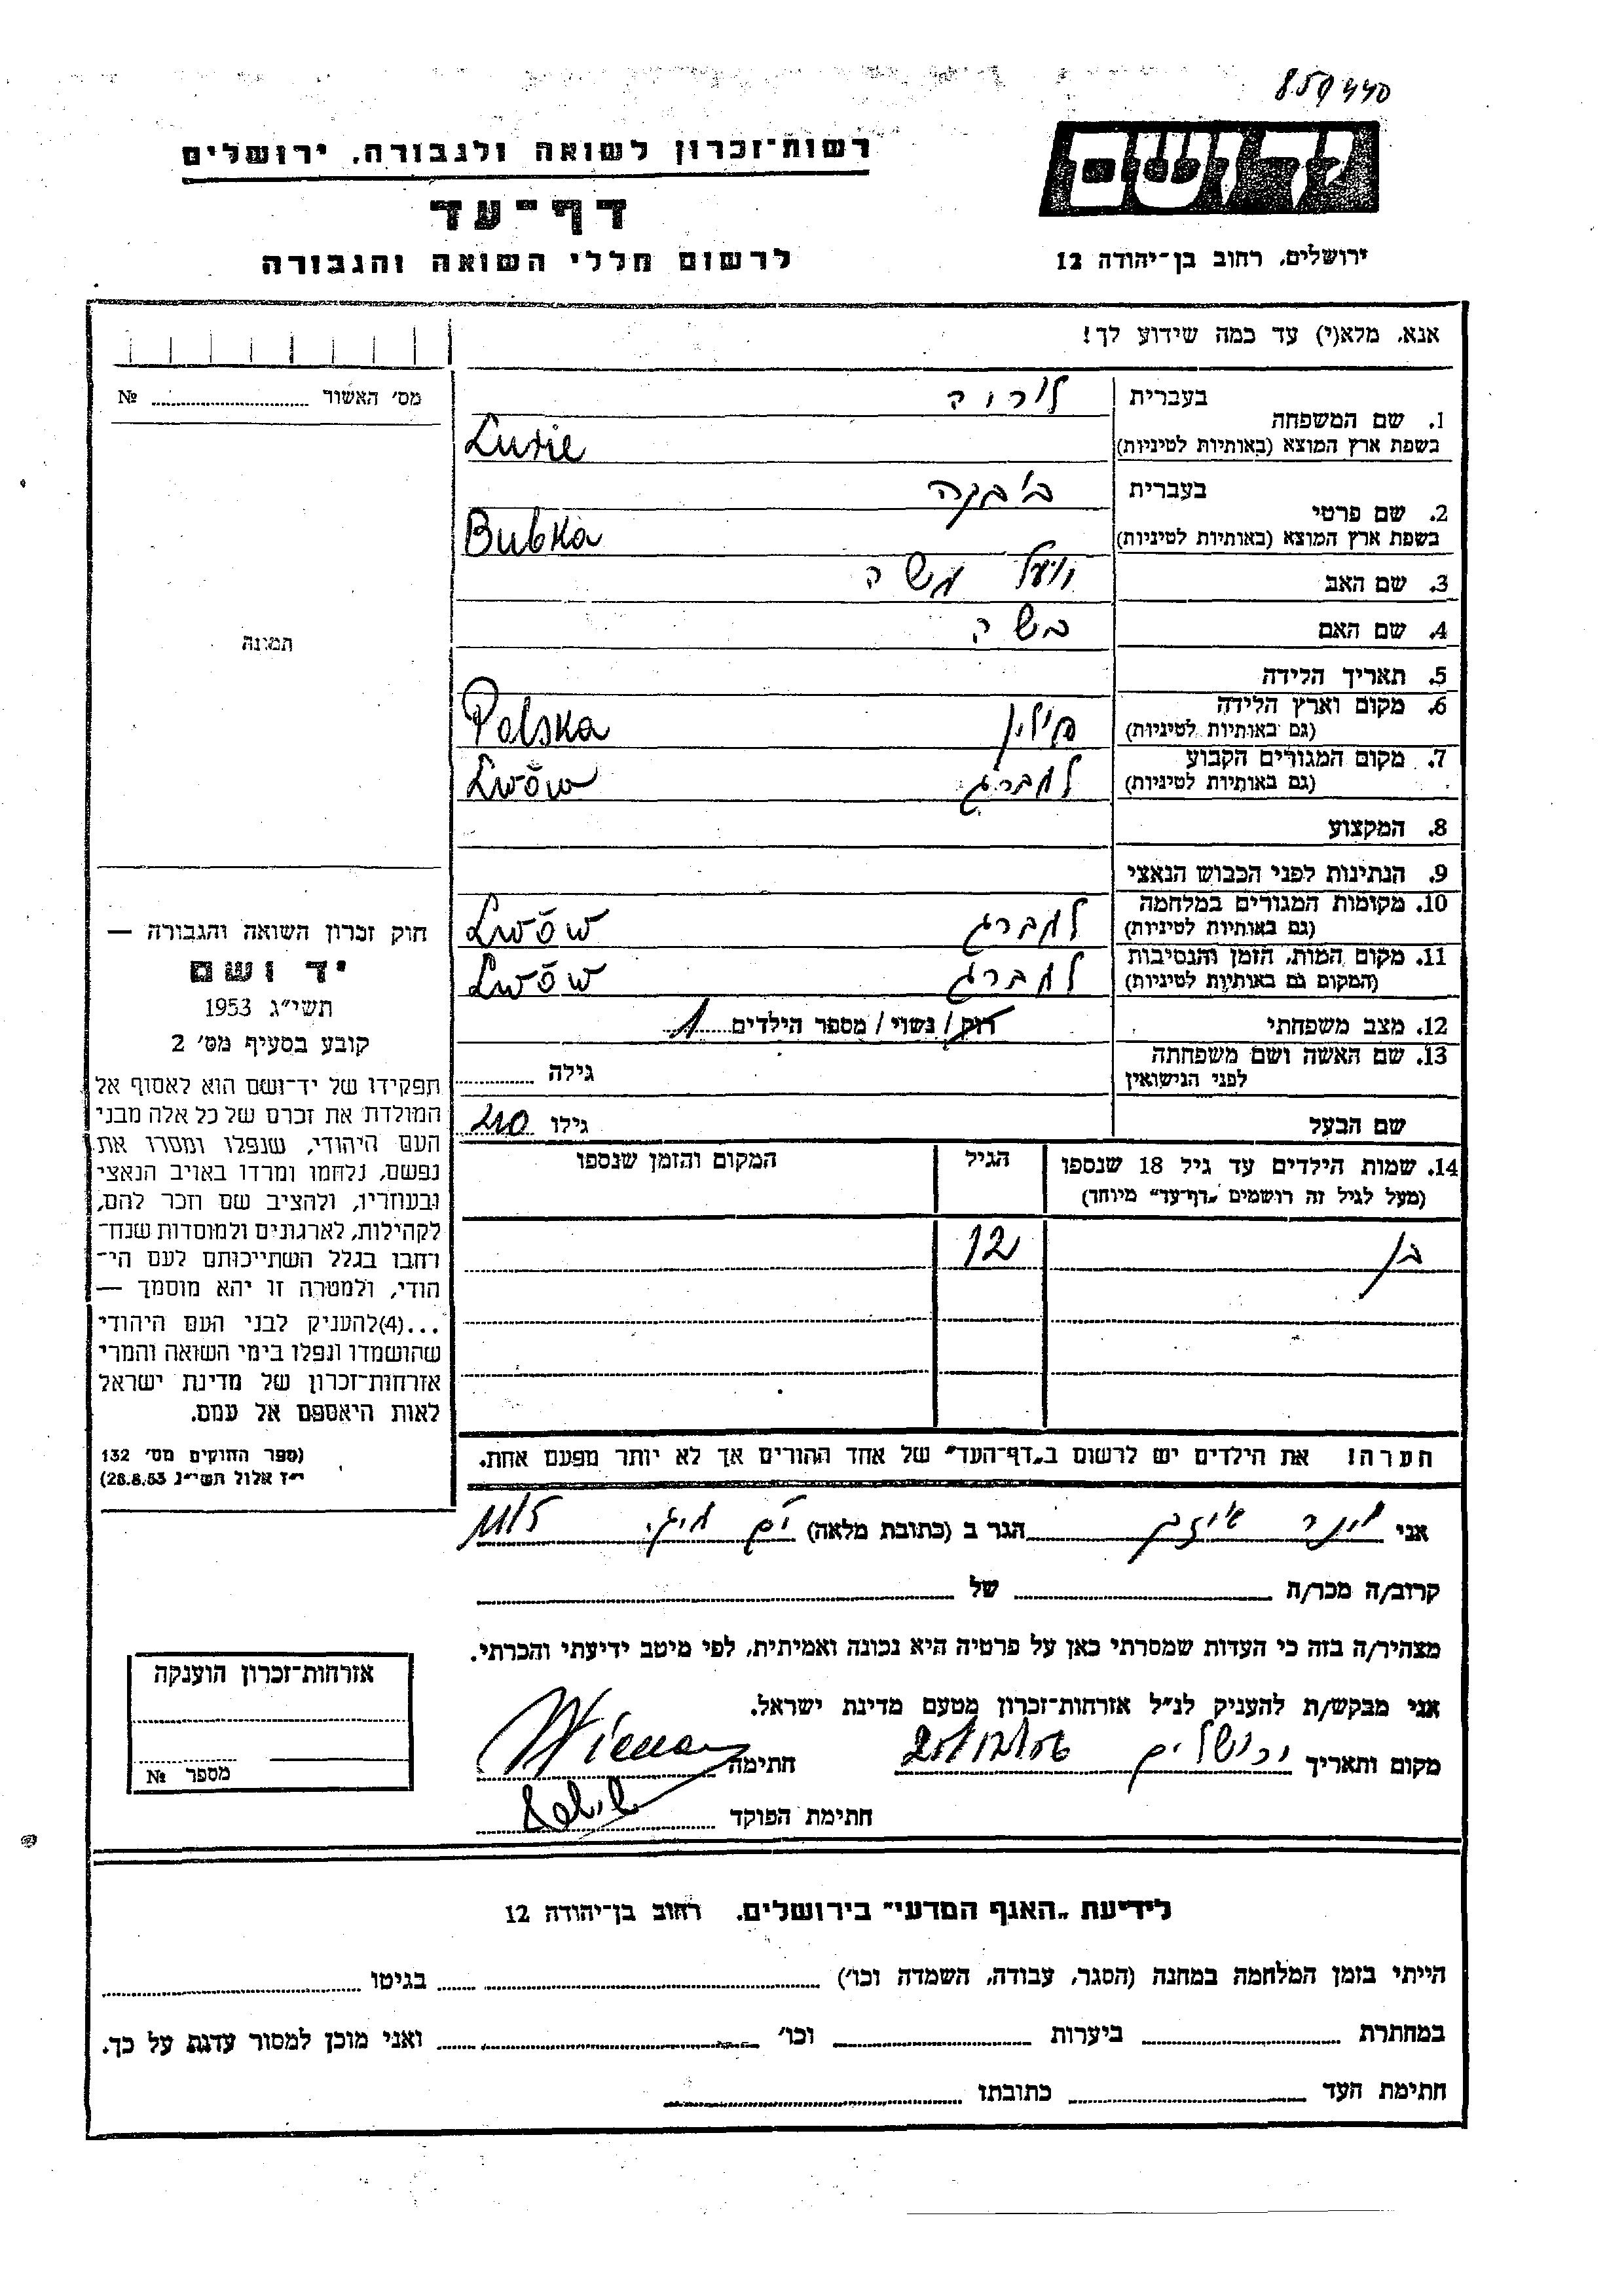 850440
רשות־זכרון לשואה ולגבורה, ירושלים
יד ושם
דף־עד
לרשום חללי השואה והגבורה
ירושלים, רחוב בן־יהודה 12
אנא, מלא(י) עד כמה שידוע לך!
מס' האשור № 
1. שם המשפחה
בעברית לוריה
בשפת ארץ המוצא (באותיות לטיניות) Lurie
2. שם פרטי
בעברית בובקה
בשפת ארץ המוצא (באותיות לטיניות) Bubka
3. שם האב משה
4. שם האם בשה
5. תאריך הלידה
6. מקום וארץ הלידה פולין Polska
(גם באותיות לטיניות)
7. מקום המגורים הקבוע למברג Lwów
(גם באותיות לטיניות)
8. המקצוע
9. הנתינות לפני הכבוש הנאצי
10. מקומות המגורים במלחמה למברג Lwów
(גם באותיות לטיניות)
11. מקום המות, הזמן והנסיבות למברג Lwów
(המקום גם באותיות לטיניות)
12. מצב משפחתי רוק / נשוי / מספר הילדים 1
13. שם האשה ושם משפחתה
לפני הנישואין גילה
שם הבעל גילו 40
14. שמות הילדים עד גיל 18 שנספו הגיל המקום והזמן שנספו
(מעל לגיל זה רושמים „דף־עד" מיוחד)
בן 12
הערה! את הילדים יש לרשום ב„דף־העד" של אחד ההורים אך לא יותר מפעם אחת.
תמונה
חוק זכרון השואה והגבורה —
יד ושם
תשי"ג 1953
קובע בסעיף מס' 2
תפקידו של יד־ושם הוא לאסוף אל
המולדת את זכרם של כל אלה מבני
העם היהודי, שנפלו ומסרו את
נפשם, נלחמו ומרדו באויב הנאצי
ובעוזריו, ולהציב שם וזכר להם,
לקהילות, לארגונים ולמוסדות שנח־
רחבו בגלל השתייכותם לעם הי־
הודי, ולמטרה זו יהא מוסמך —
...(4) להעניק לבני העם היהודי
שהושמדו ונפלו בימי השואה והמרי
אזרחות־זכרון של מדינת ישראל
לאות היאספם אל עמם.
(ספר החוקים מס' 132
י"ז אלול תשי"ג 28.8.53)
אני הגר ב (כתובת מלאה)
קרוב/ה מכר/ה של
מצהיר/ה בזה כי העדות שמסרתי כאן על פרטיה היא נכונה ואמיתית, לפי מיטב ידיעתי והכרתי.
אני מבקש/ת להעניק לנ"ל אזרחות־זכרון מטעם מדינת ישראל.
מקום ותאריך ירושלים 20/12/56 חתימה
חתימת הפוקד
אזרחות־זכרון הוענקה
מספר №
לידיעת „האגף המדעי" בירושלים, רחוב בן־יהודה 12
הייתי בזמן המלחמה במחנה (הסגר, עבודה, השמדה וכו') בגיטו
במחתרת ביערות וכו' ואני מוכן למסור עדות על כך.
חתימת העד כתובתו